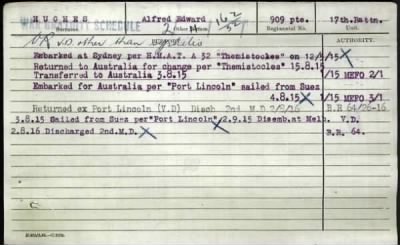 WAR GRATUITY SCHEDULE
HUGHES Alfred Edward 909 pte. 17th.Battn.
Surname Regimental No. Unit.
V.D. other than Syphilis AUTHORITY.
Embarked at Sydney per H.M.A.T. A 32 "Themistocles" on 12/5/15
Returned to Australia for change per "Themistocles" 15.8.15
Transferred to Australia 3.8.15 1/15 MEFO 2/1
Embarked for Australia per "Port Lincoln" sailed from Suez
4.8.15 1/15 MEFO 3/1
Returned ex Port Lincoln (V.D) Disch 2nd M.D 2/8/16 B.R 64/26-16
3.8.15 Sailed from Suez per"Port Lincoln" 2.9.15 Disemb.at Melb. V.D.
2.8.16 Discharged 2nd.M.D. B.R. 64.